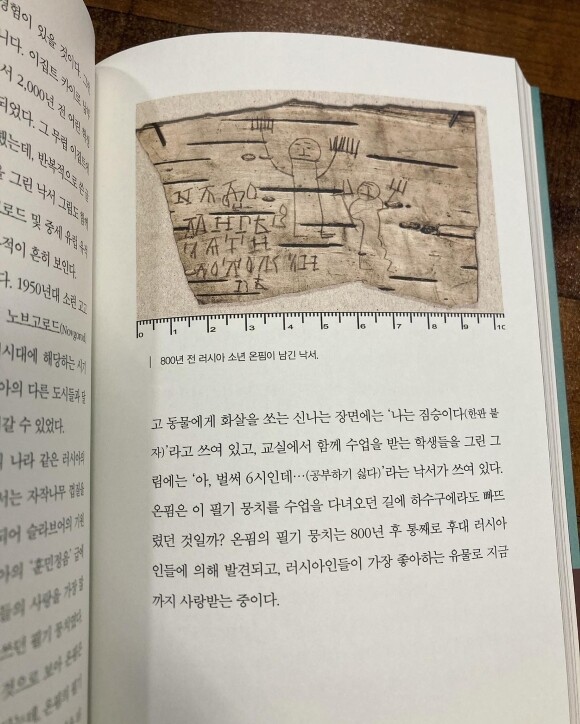 경험이 있을 것이다.
니다. 이집트 카이로
서 2,000년 전 어린
되었다. 그 무렵 이집트의
했는데, 반복적으로 쓴 글
을 그린 낙서 그림도 함께
로드 및 중세 유럽 유적
적이 흔히 보인다.
다. 1950년대 소련 고고
노브고로드(Novgorod)
시대에 해당하는 시기
아의 다른 도시들과 달
갈 수 있었다.
나라 같은 러시아의
서는 자작나무 껍질을
되어 슬라브어의 기원
아의 '훈민정음' 급에
들의 사랑을 가장 많
쓰던 필기 뭉치였다.
것으로 보아 온핌은
는데, 온핌의 필기
0 1 2 3 4 5 6 7 8 9 10
800년 전 러시아 소년 온핌이 남긴 낙서.
고 동물에게 화살을 쏘는 신나는 장면에는 '나는 짐승이다(한판 붙
자)'라고 쓰여 있고, 교실에서 함께 수업을 받는 학생들을 그린 그
림에는 '아, 벌써 6시인데…(공부하기 싫다)'라는 낙서가 쓰여 있다.
온핌은 이 필기 뭉치를 수업을 다녀오던 길에 하수구에라도 빠뜨
렸던 것일까? 온핌의 필기 뭉치는 800년 후 통째로 후대 러시아
인들에 의해 발견되고, 러시아인들이 가장 좋아하는 유물로 지금
까지 사랑받는 중이다.